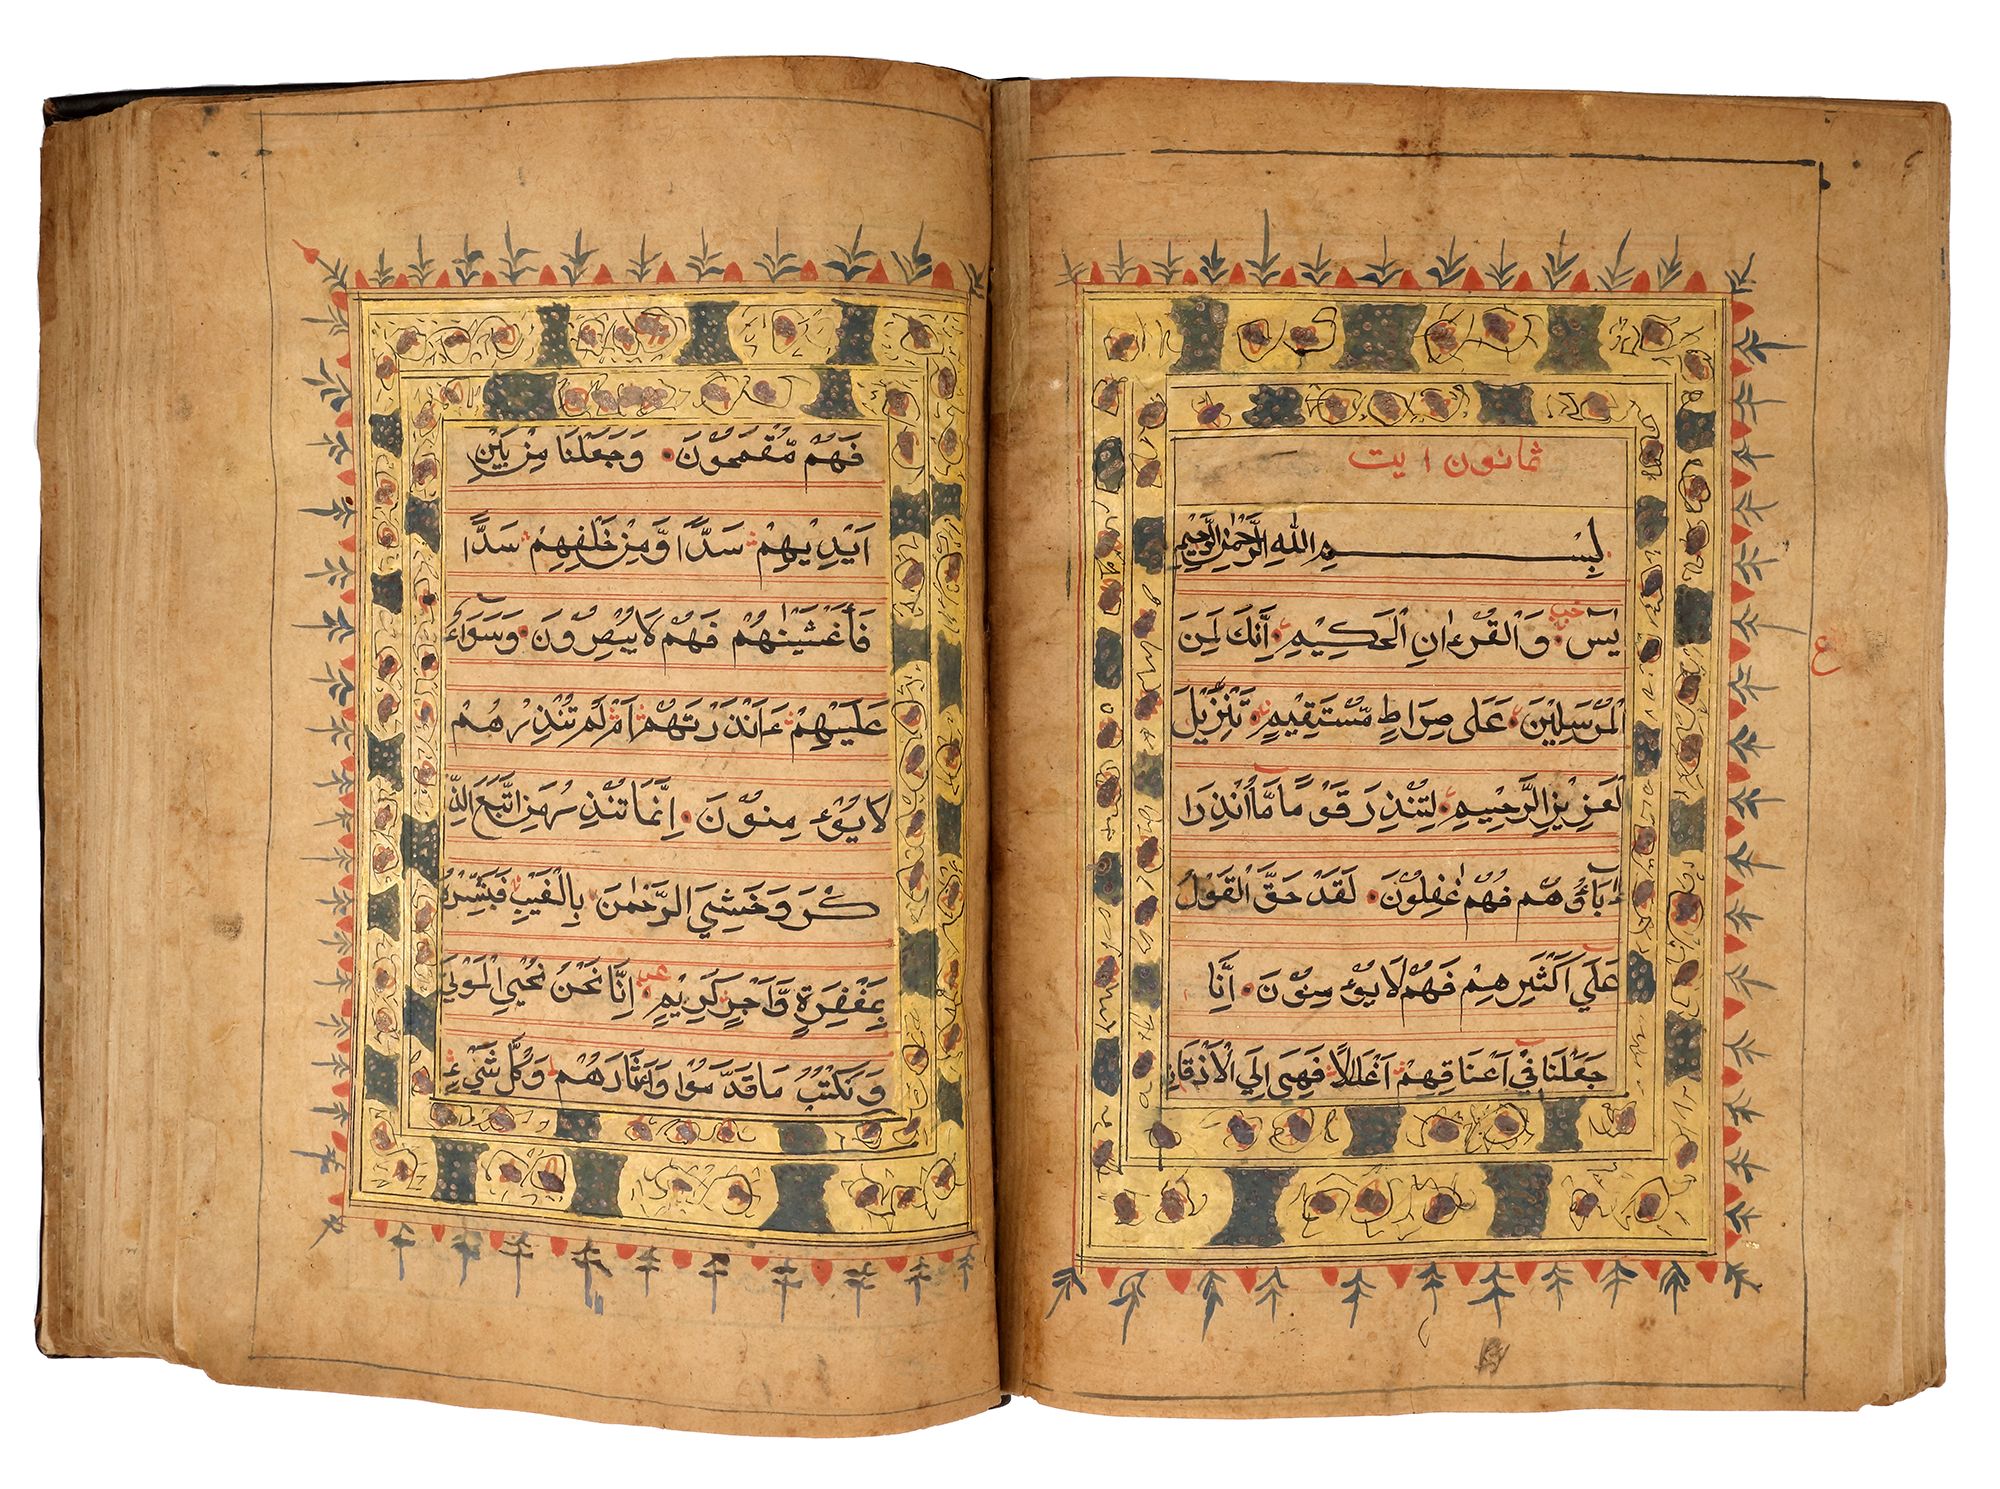 ثمانون ایت
بِسْمِ اللّٰهِ الرَّحْمٰنِ الرَّحِيْمِ
يٰسٓ وَالْقُرْءَانِ الْحَكِيْمِ اِنَّكَ لَمِنَ
الْمُرْسَلِيْنَ عَلَى صِرَاطٍ مُّسْتَقِيْمٍ تَنْزِيْلَ
الْعَزِيْزِ الرَّحِيْمِ لِتُنْذِرَ قَوْمًا مَّا اُنْذِرَ اٰ
ٰابَاؤُهُمْ فَهُمْ غٰفِلُوْنَ لَقَدْ حَقَّ الْقَوْلُ
عَلَي اَكْثَرِهِمْ فَهُمْ لَا يُؤْمِنُوْنَ اِنَّا
جَعَلْنَا فِيْ اَعْنَاقِهِمْ اَغْلَالًا فَهِيَ اِلَي الْاَذْقَانِ
فَهُمْ مُّقْمَحُوْنَ وَجَعَلْنَا مِنْ بَيْنِ
اَيْدِيْهِمْ سَدًّا وَّمِنْ خَلْفِهِمْ سَدًّا
فَاَغْشَيْنٰهُمْ فَهُمْ لَا يُبْصِرُوْنَ وَسَوَاءٌ
عَلَيْهِمْ ءَاَنْذَرْتَهُمْ اَمْ لَمْ تُنْذِرْهُمْ
لَا يُؤْمِنُوْنَ اِنَّمَا تُنْذِرُ مَنِ اتَّبَعَ الذِّ
كْرَ وَخَشِيَ الرَّحْمٰنَ بِالْغَيْبِ فَبَشِّرْهُ
بِمَغْفِرَةٍ وَّاَجْرٍ كَرِيْمٍ اِنَّا نَحْنُ نُحْيِي الْمَوْتَي
وَنَكْتُبُ مَا قَدَّمُوْا وَءَاثَارَهُمْ وَكُلَّ شَيْءٍ
ع